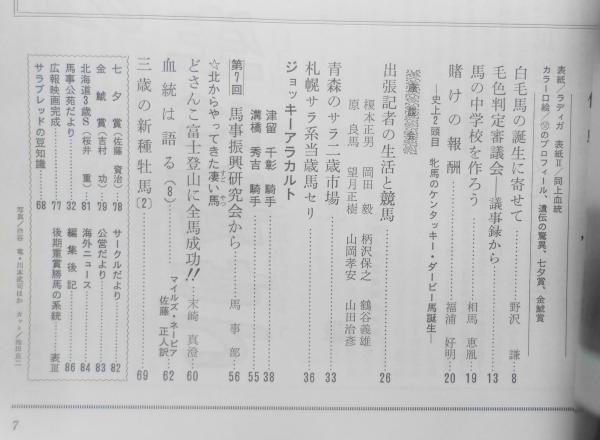 表紙/ラディガ 表紙Ⅱ/同上血統
カラー口絵/⑩のプロフィール、遺伝の驚異、七夕賞、金鯱賞
白毛馬の誕生に寄せて……野沢 謙…8
毛色判定審議会―議事録から……13
馬の中学校を作ろう……相馬 恵胤…19
賭けの報酬……福浦 好明…20
―史上2頭目 牝馬のケンタッキー・ダービー馬誕生―
座談会
出張記者の生活と競馬……26
榎本正男 岡田 毅 柄沢保之 鶴谷義雄
原 良馬 望月正樹 山岡孝安 山田治彦
青森のサラ二歳市場……33
札幌サラ系当歳馬セリ……36
ジョッキーアラカルト
津留 千彰 騎手……38
溝橋 秀吉 騎手……55
第7回 馬事振興研究会から……馬 事 部…56
☆北からやってきた凄い馬
どさんこ富士登山に全馬成功!!…末崎 真澄…60
血統は語る(8)……マイルズ・ネーピア 佐藤 正人訳…62
三歳の新種牡馬〔2〕……69
七夕賞(佐藤 資治)…78
金鯱賞(吉村 功)…79
北海道3歳S(桜井 重)…81
馬事公苑だより……32
広報映画完成……77
サラブレッドの豆知識……68
サークルだより……82
公営だより……83
海外ニュース……84
編集後記……86
後期重賞勝馬の系統……表Ⅲ
7